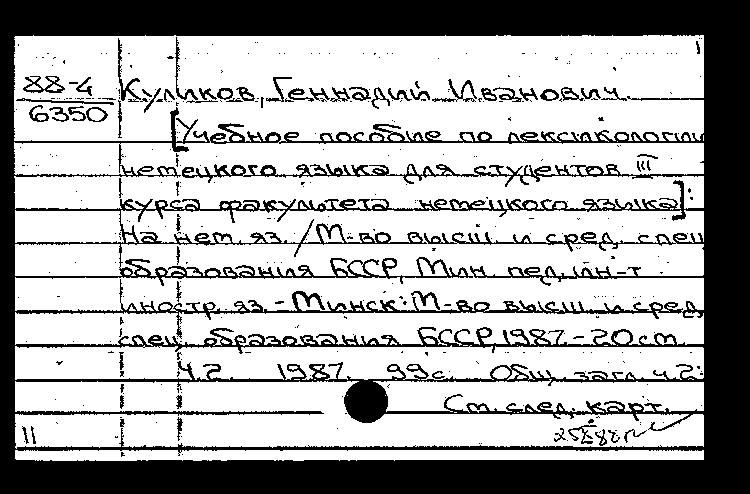 1
88-4 Куликов, Геннадий Иванович.
6350
[Учебное пособие по лексикологии
немецкого языка для студентов III
курса факультета немецкого языка]:
На нем. яз. / М-во высш. и сред. спец
образования БССР, Мин. пед. ин-т
иностр. яз. - Минск: М-во высш. и сред.
спец. образования БССР, 1987. - 20 см.
Ч.2. 1987. 99 с. Общ. загл. ч.2:
См. след. карт.
11